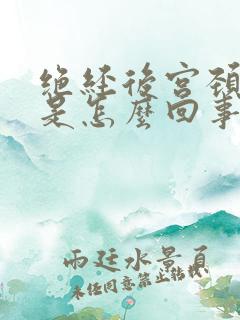 绝经后宫颈
是怎麽回事
雨廷水景员
未经同意禁止转载